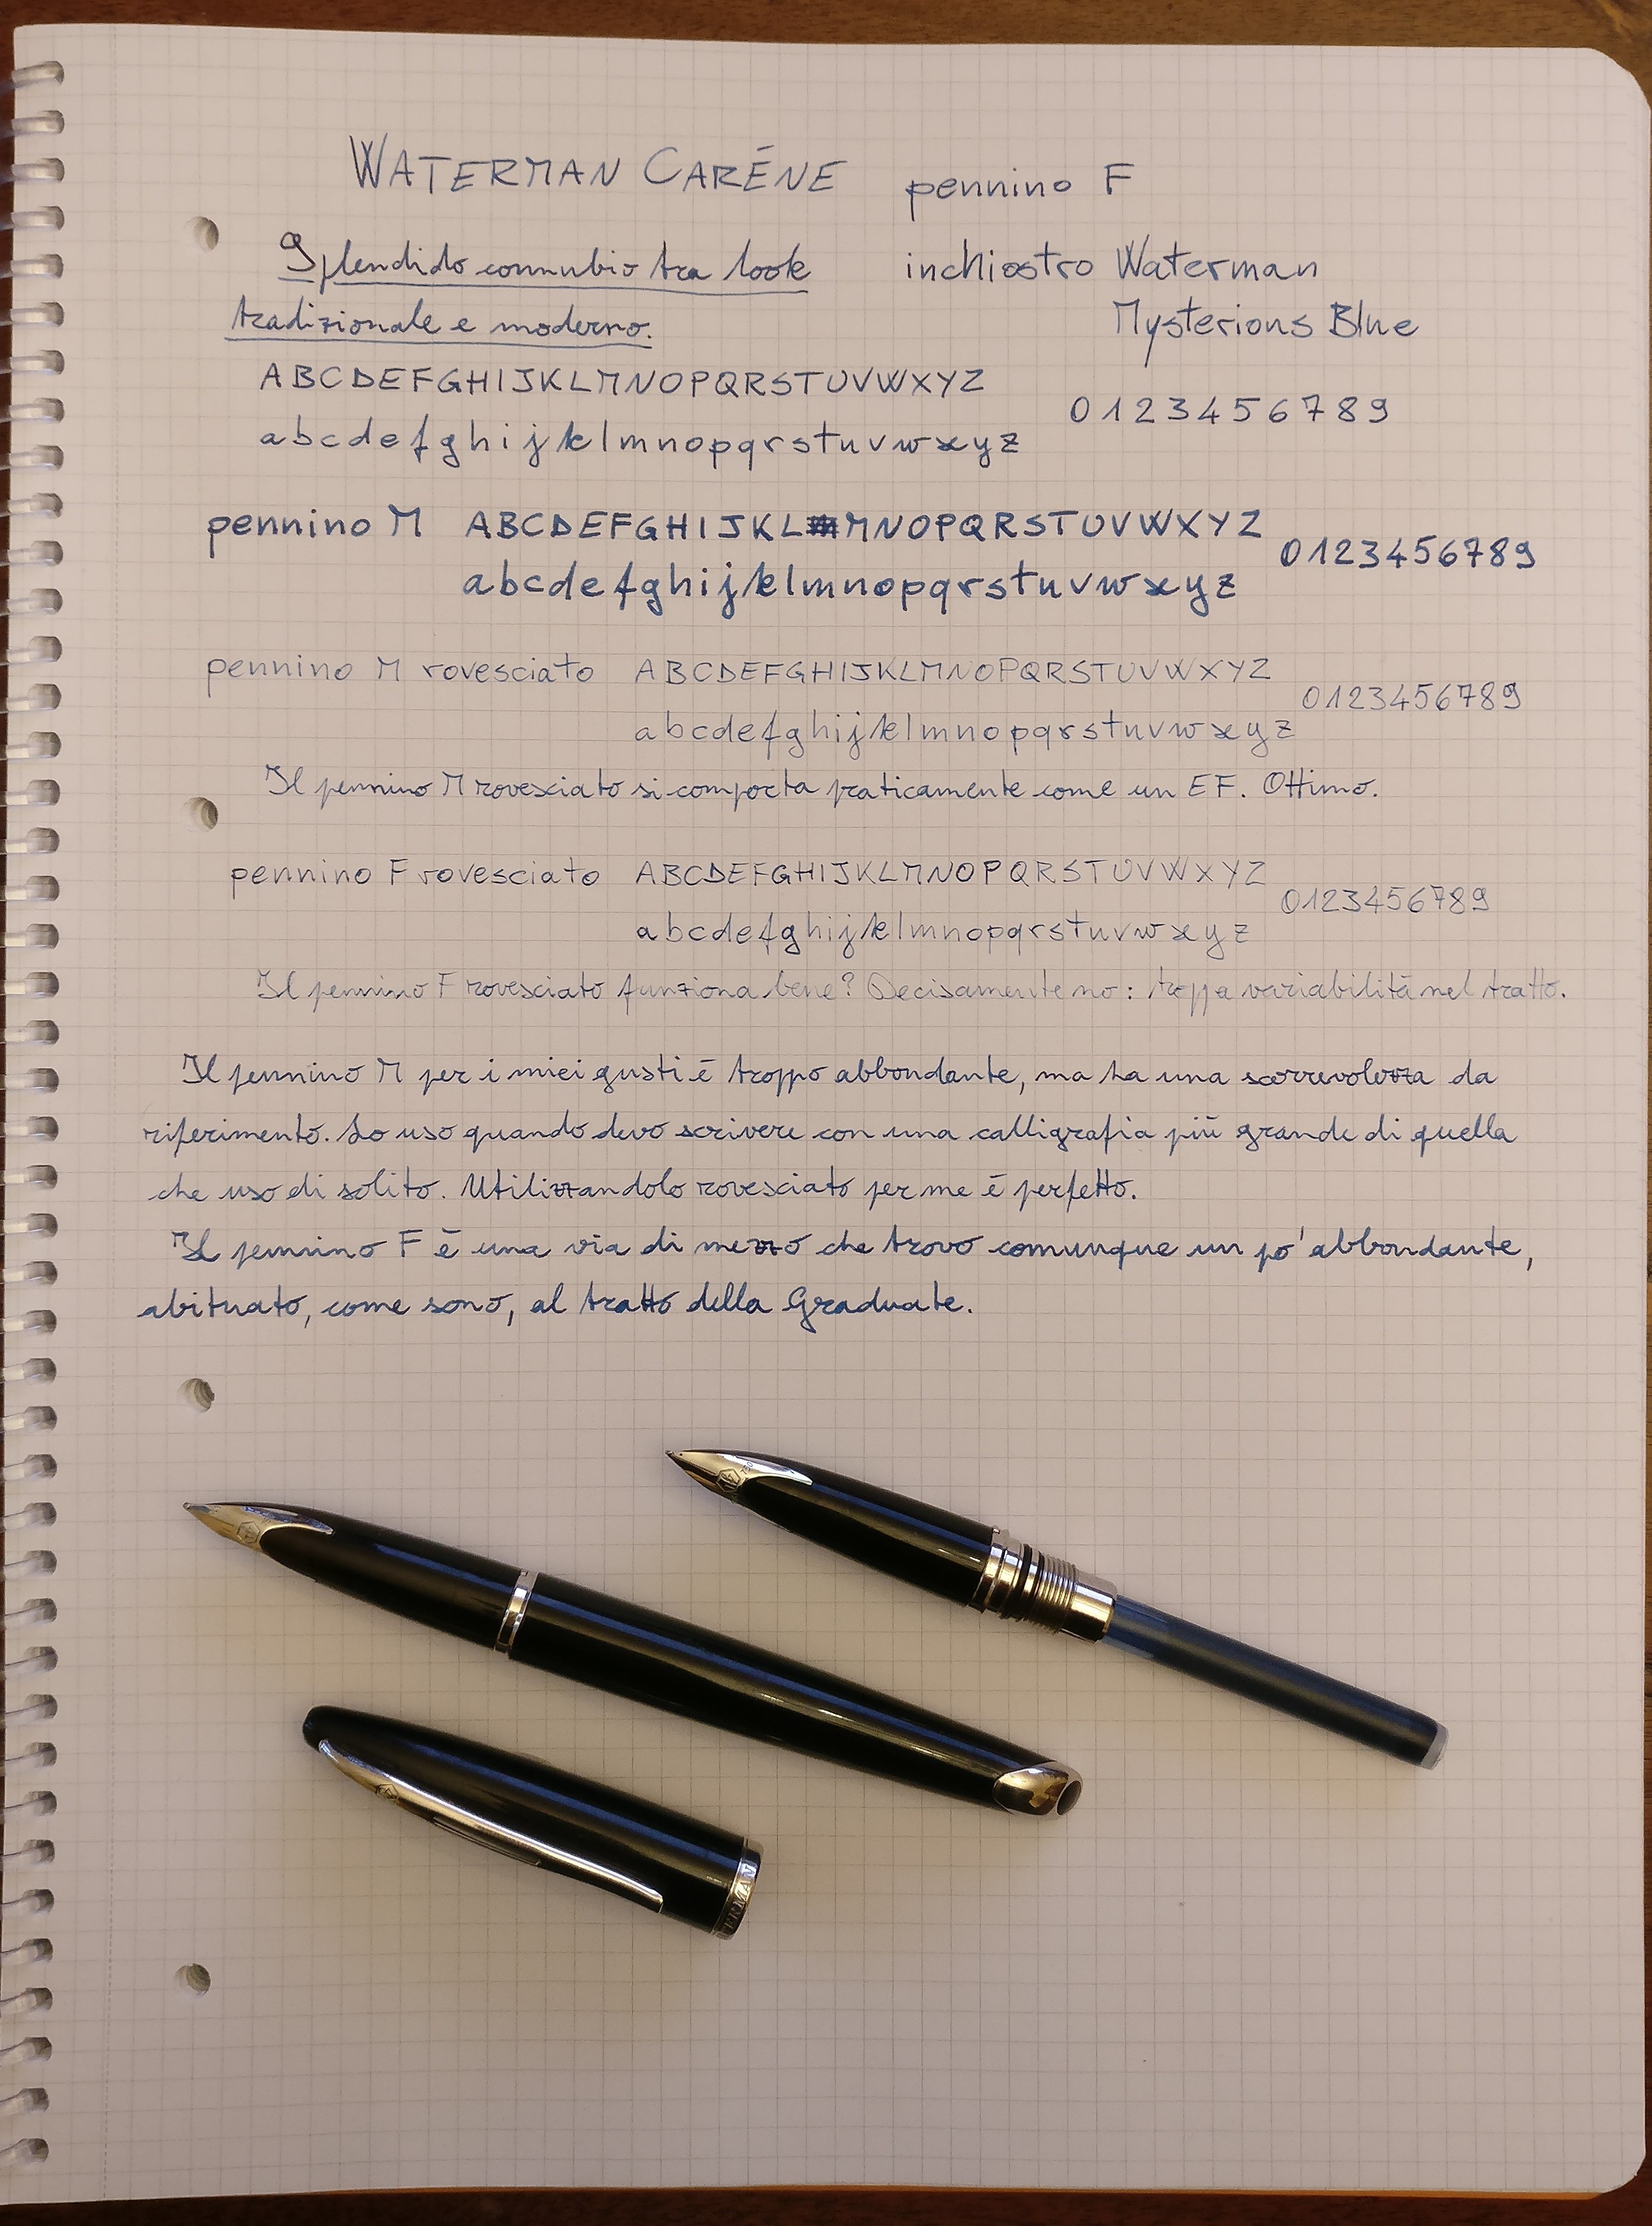 WATERMAN CARÈNE pennino F
Splendido connubio tra look
tradizionale e moderno.
inchiostro Waterman
Mysterious Blue
ABCDEFGHIJKLMNOPQRSTUVWXYZ
abcdefghijklmnopqrstuvwxyz
0123456789
pennino M ABCDEFGHIJKLMNOPQRSTUVWXYZ
abcdefghijklmnopqrstuvwxyz
0123456789
pennino M rovesciato ABCDEFGHIJKLMNOPQRSTUVWXYZ
abcdefghijklmnopqrstuvwxyz
0123456789
Il pennino M rovesciato si comporta praticamente come un EF. Ottimo.
pennino F rovesciato ABCDEFGHIJKLMNOPQRSTUVWXYZ
abcdefghijklmnopqrstuvwxyz
0123456789
Il pennino F rovesciato funziona bene? Decisamente no: troppa variabilità nel tratto.
Il pennino M per i miei gusti è troppo abbondante, ma ha una scorrevolezza da
riferimento. Lo uso quando devo scrivere con una calligrafia più grande di quella
che uso di solito. Utilizzandolo rovesciato per me è perfetto.
Il pennino F è una via di mezzo che trovo comunque un po' abbondante,
abituato, come sono, al tratto della Graduate.
ERMAN